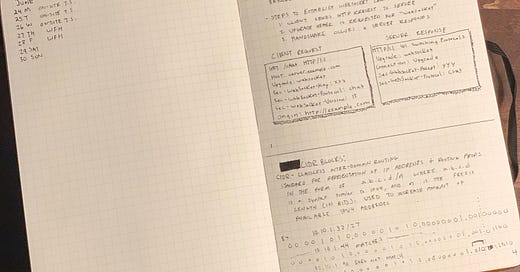 JUNE
24 M ON-SITE T.S.
25 T ON-SITE T.S.
26 W ON-SITE T.S.
27 TH WFH
28 F WFH
29 SAT
30 SUN
- STEPS TO ESTABLISH WEBSOCKET
1 CLIENT SENDS HTTP REQUEST TO SERVER
2 UPGRADE HEADER IS REQUESTED FOR "WEBSOCKET"
3 HANDSHAKE OCCURS & SERVER RESPONDS
CLIENT REQUEST
GET /chat HTTP/1.1
Host: server.example.com
Upgrade: websocket
Sec-WebSocket-Key: XYZ
Sec-WebSocket-Protocol: chat
Sec-WebSocket-Version: 13
Origin: http://example.com
SERVER RESPONSE
HTTP/1.1 101 Switching Protocols
Upgrade: websocket
Connection: Upgrade
Sec-WebSocket-Accept: YYY
Sec-WebSocket-Protocol: chat
CIDR BLOCKS:
CIDR - CLASSLESS INTER-DOMAIN ROUTING
STANDARD FOR REPRESENTATION OF IP ADDRESSES & ROUTING
IN THE FORM OF a.b.c.d/n WHERE a.b.c.d
IS A SYNTAX SIMILAR TO IPV4, AND n IS THE PREFIX
LENGTH (IN BITS). USED TO INCREASE AMOUNT OF
AVAILABLE IPV4 ADDRESSES
10.10.1.32/27
10.10.1.44 MATCHES
DOES NOT MATCH
4